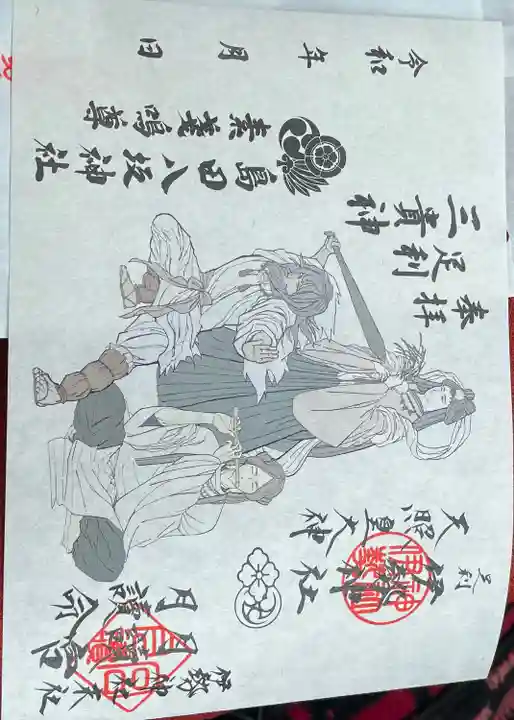 奉拝
足利
三貴神
足利
伊勢神社
天照皇大神
伊勢神社末社
月讀命
島田八坂神社
素戔嗚尊
令和 年 月 日